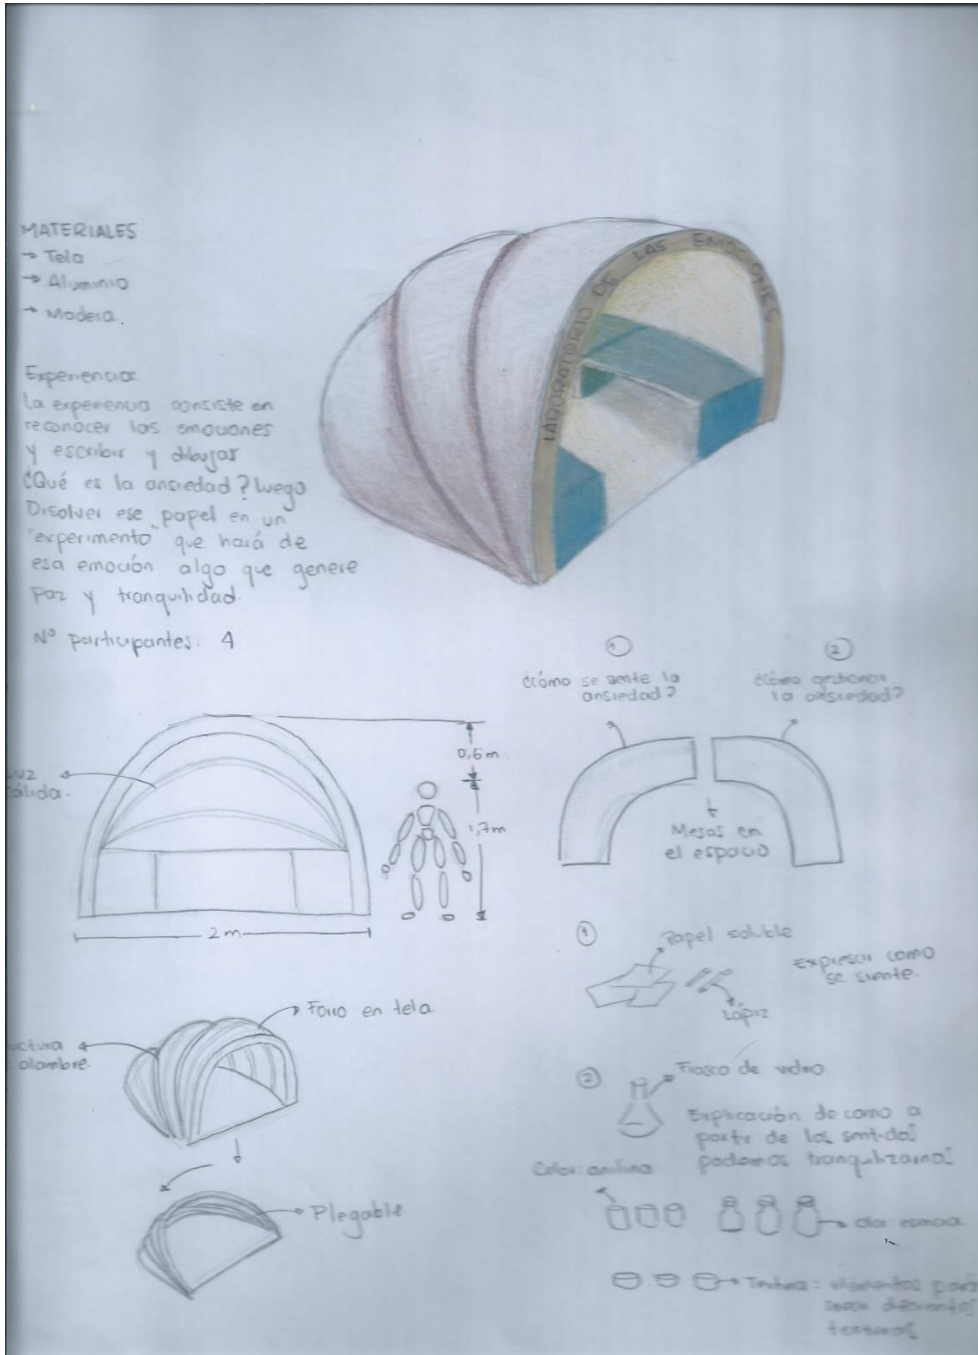 MATERIALES
→ Tela
→ Aluminio
→ Madera.
Experiencia:
La experiencia consiste en
reconocer las emociones
y escribir y dibujar
¿Qué es la ansiedad? luego
Disolver ese papel en un
"experimento" que hará de
esa emoción algo que genere
paz y tranquilidad.
Nº participantes: 4
LABORATORIO DE LAS EMOCIONES
1
¿Cómo se siente la
ansiedad?
2
¿Cómo gestionar
la ansiedad?
Mesas en
el espacio
luz
cálida.
0,6m
1,7m
2m
1
Papel soluble
Lápiz
Expresar como
se siente.
Forro en tela
alambre.
Plegable
2
Frasco de vidrio
Explicación de como a
partir de los sentidos
podemos tranquilizarnos
Color: anilina
olor esencia
Textura: elementos para
crear diferentes
texturas